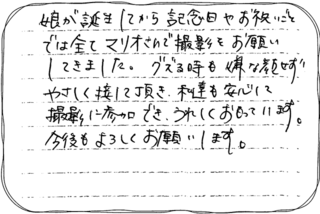 娘が誕生してから記念日やお祝いごと
では全てマリオさんで撮影をお願い
してきました。グズる時も嫌な顔せず
やさしく接して頂き、私達も安心して
撮影に参加でき、うれしくおもっています。
今後もよろしくお願いします。